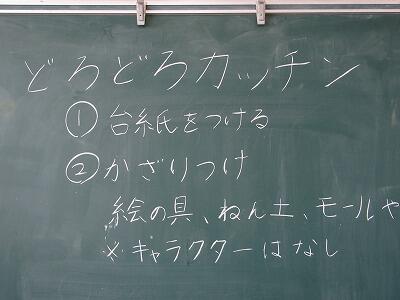 どろどろカッチン
① 台紙をつける
② かざりつけ
絵の具、ねん土、モールや
※キャラクターはなし